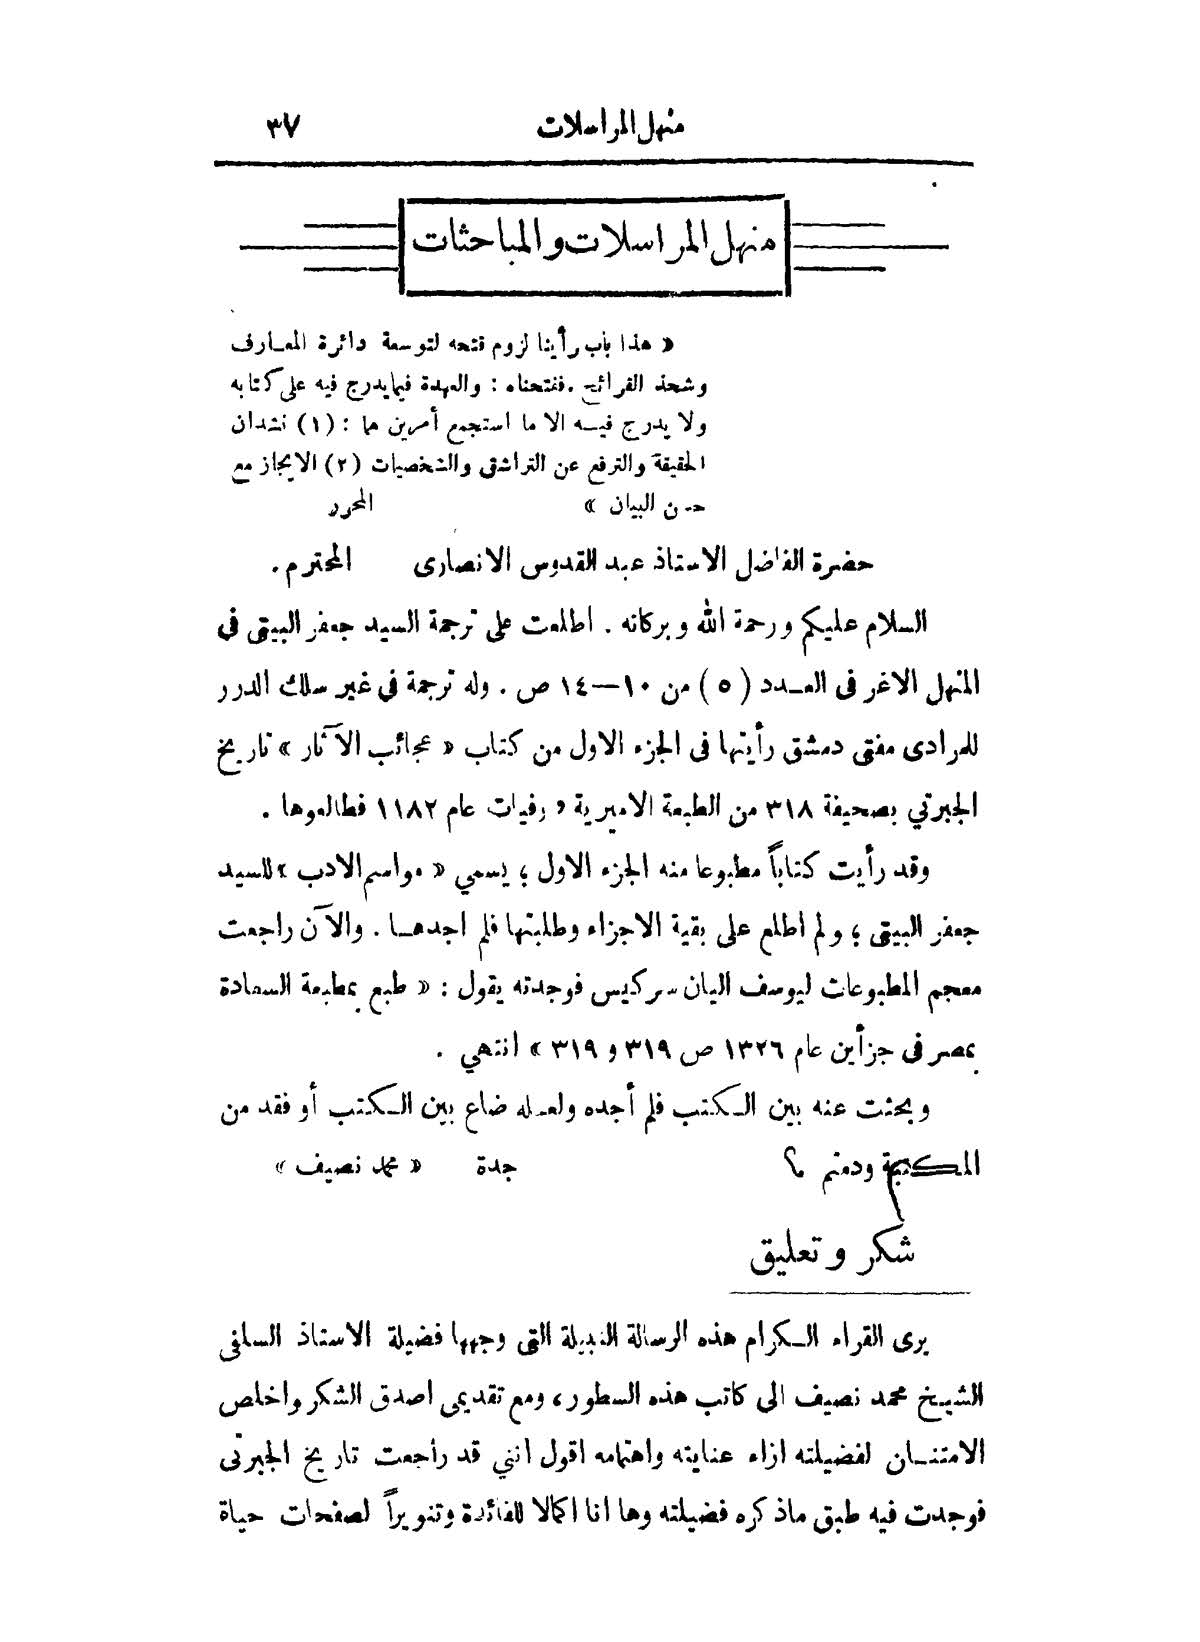 منهل المراسلات ٣٧
منهل المراسلات والمباحثات
« هذا باب رأينا لزوم فتحه لتوسعة دائرة المعارف
وشحذ القرائح . ففتحناه : والعهدة فيما يدرج فيه على كتابه
ولا يدرج فيه الا ما استجمع أمرين هما : (١) نشدان
الحقيقة والترفع عن التراشق والشخصيات (٢) الايجاز مع
حسن البيان » المحرر
حضرة الفاضل الاستاذ عبد القدوس الانصارى المحترم .
السلام عليكم ورحمة الله وبركاته . اطلعت على ترجمة السيد جعفر البيتى فى
المنهل الاغر فى العدد (٥) من ١٠—١٤ ص . وله ترجمة فى غير سلك الدرر
للمرادى مفتى دمشق رأيتها فى الجزء الاول من كتاب « عجائب الآثار » تاريخ
الجبرتي بصحيفة ٣١٨ من الطبعة الاميرية و وفيات عام ١١٨٢ فطالعوها .
وقد رأيت كتاباً مطبوعا منه الجزء الاول ؛ يسمي « مواسم الادب » للسيد
جعفر البيتى ؛ ولم اطلع على بقية الاجزاء وطلبتها فلم اجدها . والآن راجعت
معجم المطبوعات ليوسف اليان سركيس فوجدته يقول : « طبع بمطبعة السعادة
بمصر فى جزأين عام ١٣٢٦ ص ٣١٩ و ٣١٩ » انتهي .
وبحثت عنه بين الكتب فلم أجده ولعله ضاع بين الكتب أو فقد من
المكتبة ودمتم ؟ جدة « محمد نصيف »
شكر وتعليق
يرى القراء الكرام هذه الرسالة النبيلة التى وجهها فضيلة الاستاذ السلفى
الشيخ محمد نصيف الى كاتب هذه السطور ، ومع تقديمى اصدق الشكر واخلص
الامتنان لفضيلته ازاء عنايته واهتمامه اقول انني قد راجعت تاريخ الجبرتى
فوجدت فيه طبق ماذكره فضيلته وها انا اكمالا للفائدة وتنويراً لصفحات حياة